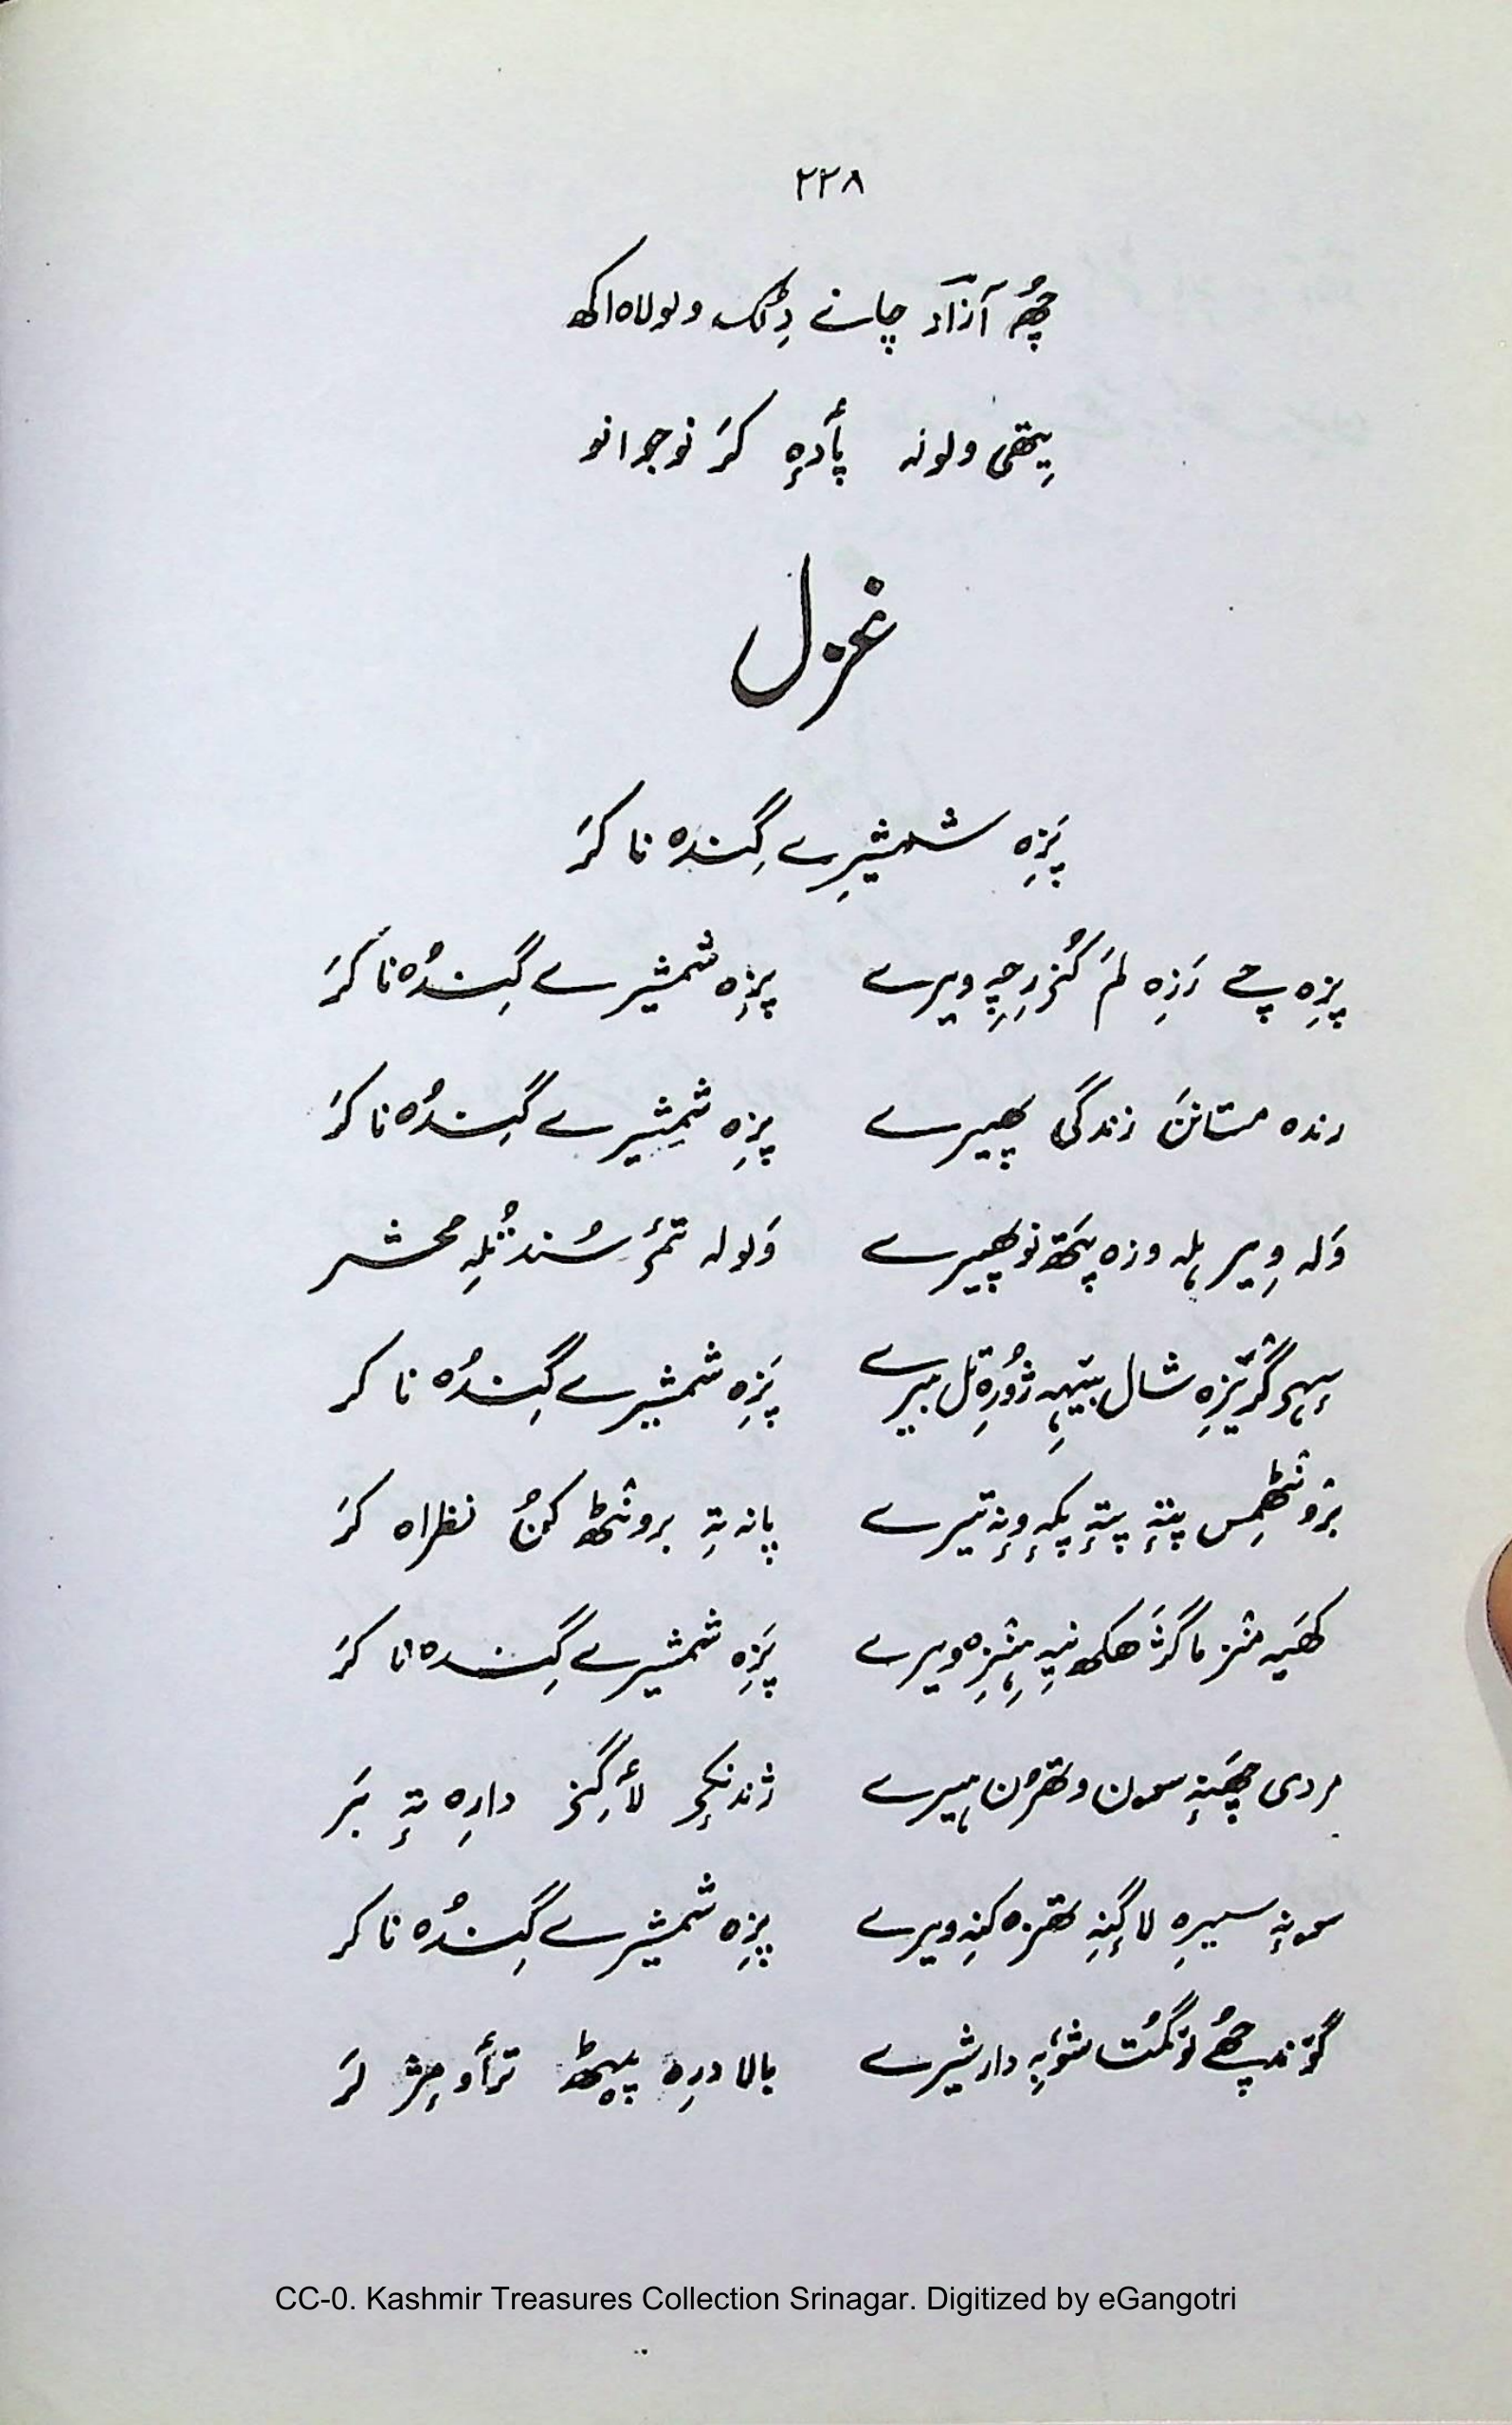 ۲۲۸
چُھ آزاد چانے دِلُک ولولاہ اکھ
یِتھی ولولہ پأدٕہ کرَ نوجوانو
غزل
پَزِہ شمشیرِے گِندہ نا کرَ
پزِہ چے رَزِہ لمَ کُنزرِچہِ ویرے پزِہ شمشیرے گِندُہ نا کرَ
رندہ مستاننَ زندگی پھیرے پزِہ شمشیرے گِندُہ نا کرَ
وَلہ وِیر ہلہ وزہ پَتھ نو پھیرے وَلولہ تمۍ سُند تُلہِ محشر
شال ژُورِہ تل نیرے پَزِہ شمشیرے گِندُہ نا کر
برٛونٹھمِس پتہٕ پتہٕ پکہٕ وٕنہٕ تیرے پانہ تہِ برونٹھ کُن نظراہ کرَ
کھَیہ منز ما گژَھکھ نیہِ ہِنزِہ ویرے پَزِہ شمشیرے گِندہ نا کرَ
مردی چھَنہٕ سون وتھرُن ہیرے ژندنکۍ لأگِنۍ دارِہ تہٕ بَر
سونہٕ سیرِہ لاگنہِ تھزہ کنہِ ویرے پزِہ شمشیرے گِندُہ نا کر
گوند چُھے لوگمُت شوٗبہِ دار شیرے بالا درِہ پیٹھ ترأو مٕژر لَر
CC-0. Kashmir Treasures Collection Srinagar. Digitized by eGangotri